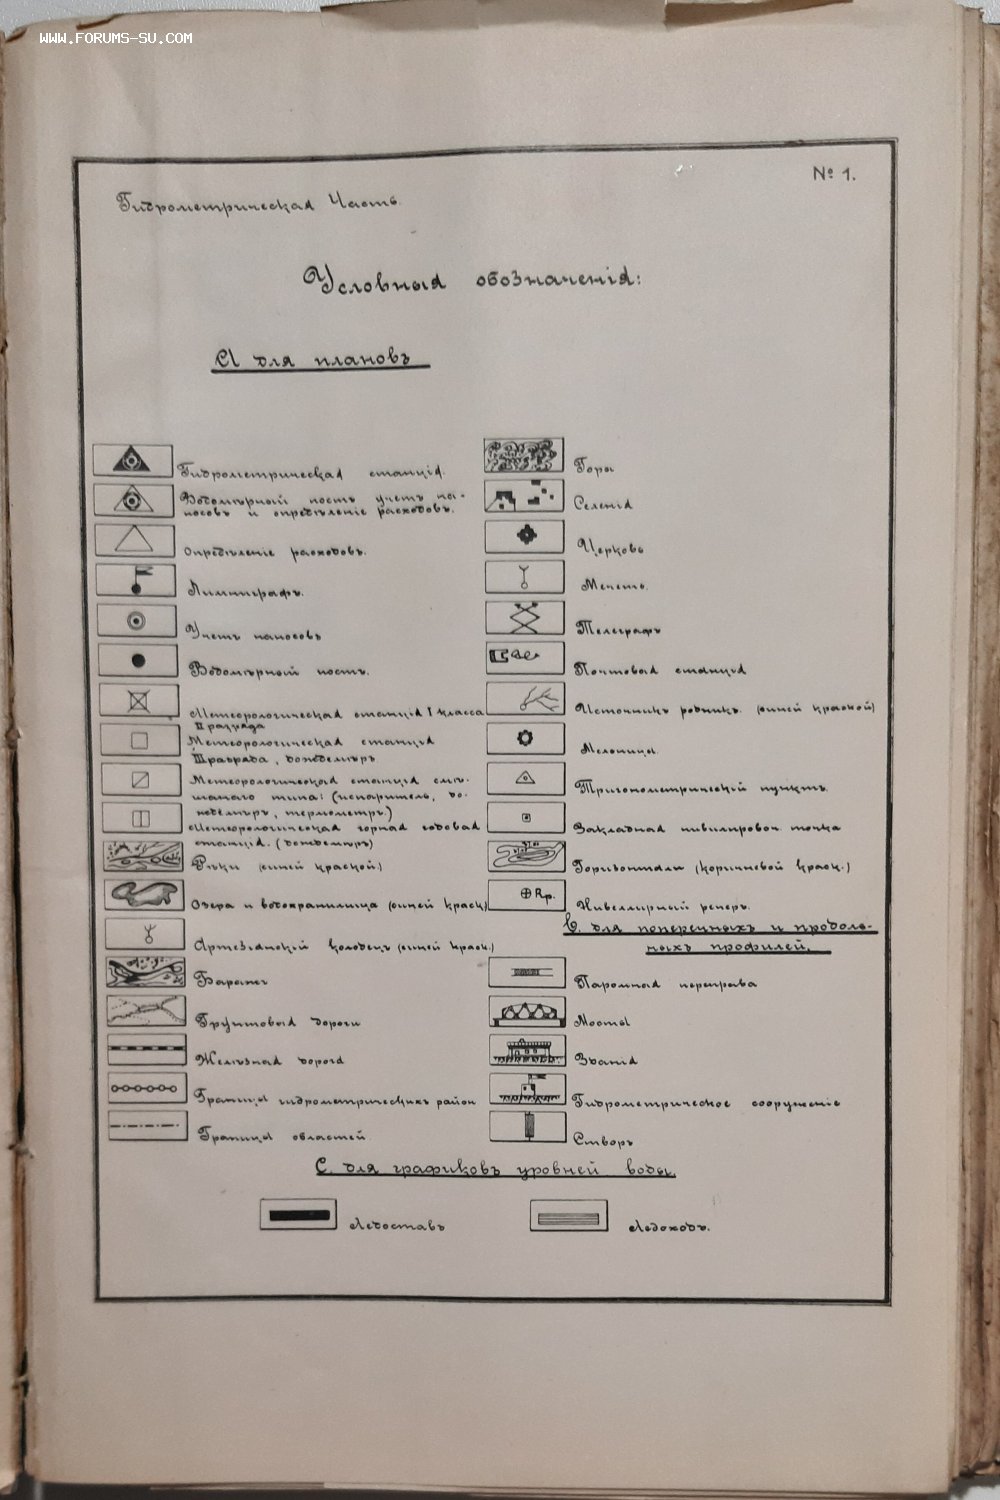 WWW.FORUMS-SU.COM
№ 1.
Гидрометрическая Часть.
Условныя обозначенія:
А для плановъ
Гидрометрическая станція.
Водомѣрный постъ учетъ на-
носовъ и опредѣленіе расходовъ.
Опредѣленіе расходовъ.
Лимниграфъ.
Учетъ наносовъ
Водомѣрный постъ.
Метеорологическая станція I класса
II разряда
Метеорологическая станція
III разряда, дождемѣръ.
Метеорологическая станція смѣ-
шанаго типа: (испаритель, до-
ждемѣръ, термометръ.)
Метеорологическая горная годовая
станція. (дождемѣръ)
Рѣки (синей краской)
Озера и водохранилища (синей краск)
Артезіанскій колодецъ (синей краск.)
Баражъ
Грунтовыя дороги
Желѣзная дорога
Границы гидрометрическихъ район
Границы областей.
Горы
Селенія
Церковь
Мечеть.
Телеграфъ
Почтовыя станція
Источникъ родникъ. (синей краской)
Мельницы.
Тригонометрическій пунктъ.
Закладная нивилировоч. точка
Горизонтали (коричневой краск.)
Rp.
Нивеллирный реперъ.
В. для поперечныхъ и продоль-
ныхъ профилей.
Паромная переправа
Мосты
Зданія
Гидрометрическое сооруженіе
Створъ
С. для графиковъ уровней воды.
Ледоставъ
Ледоходъ.